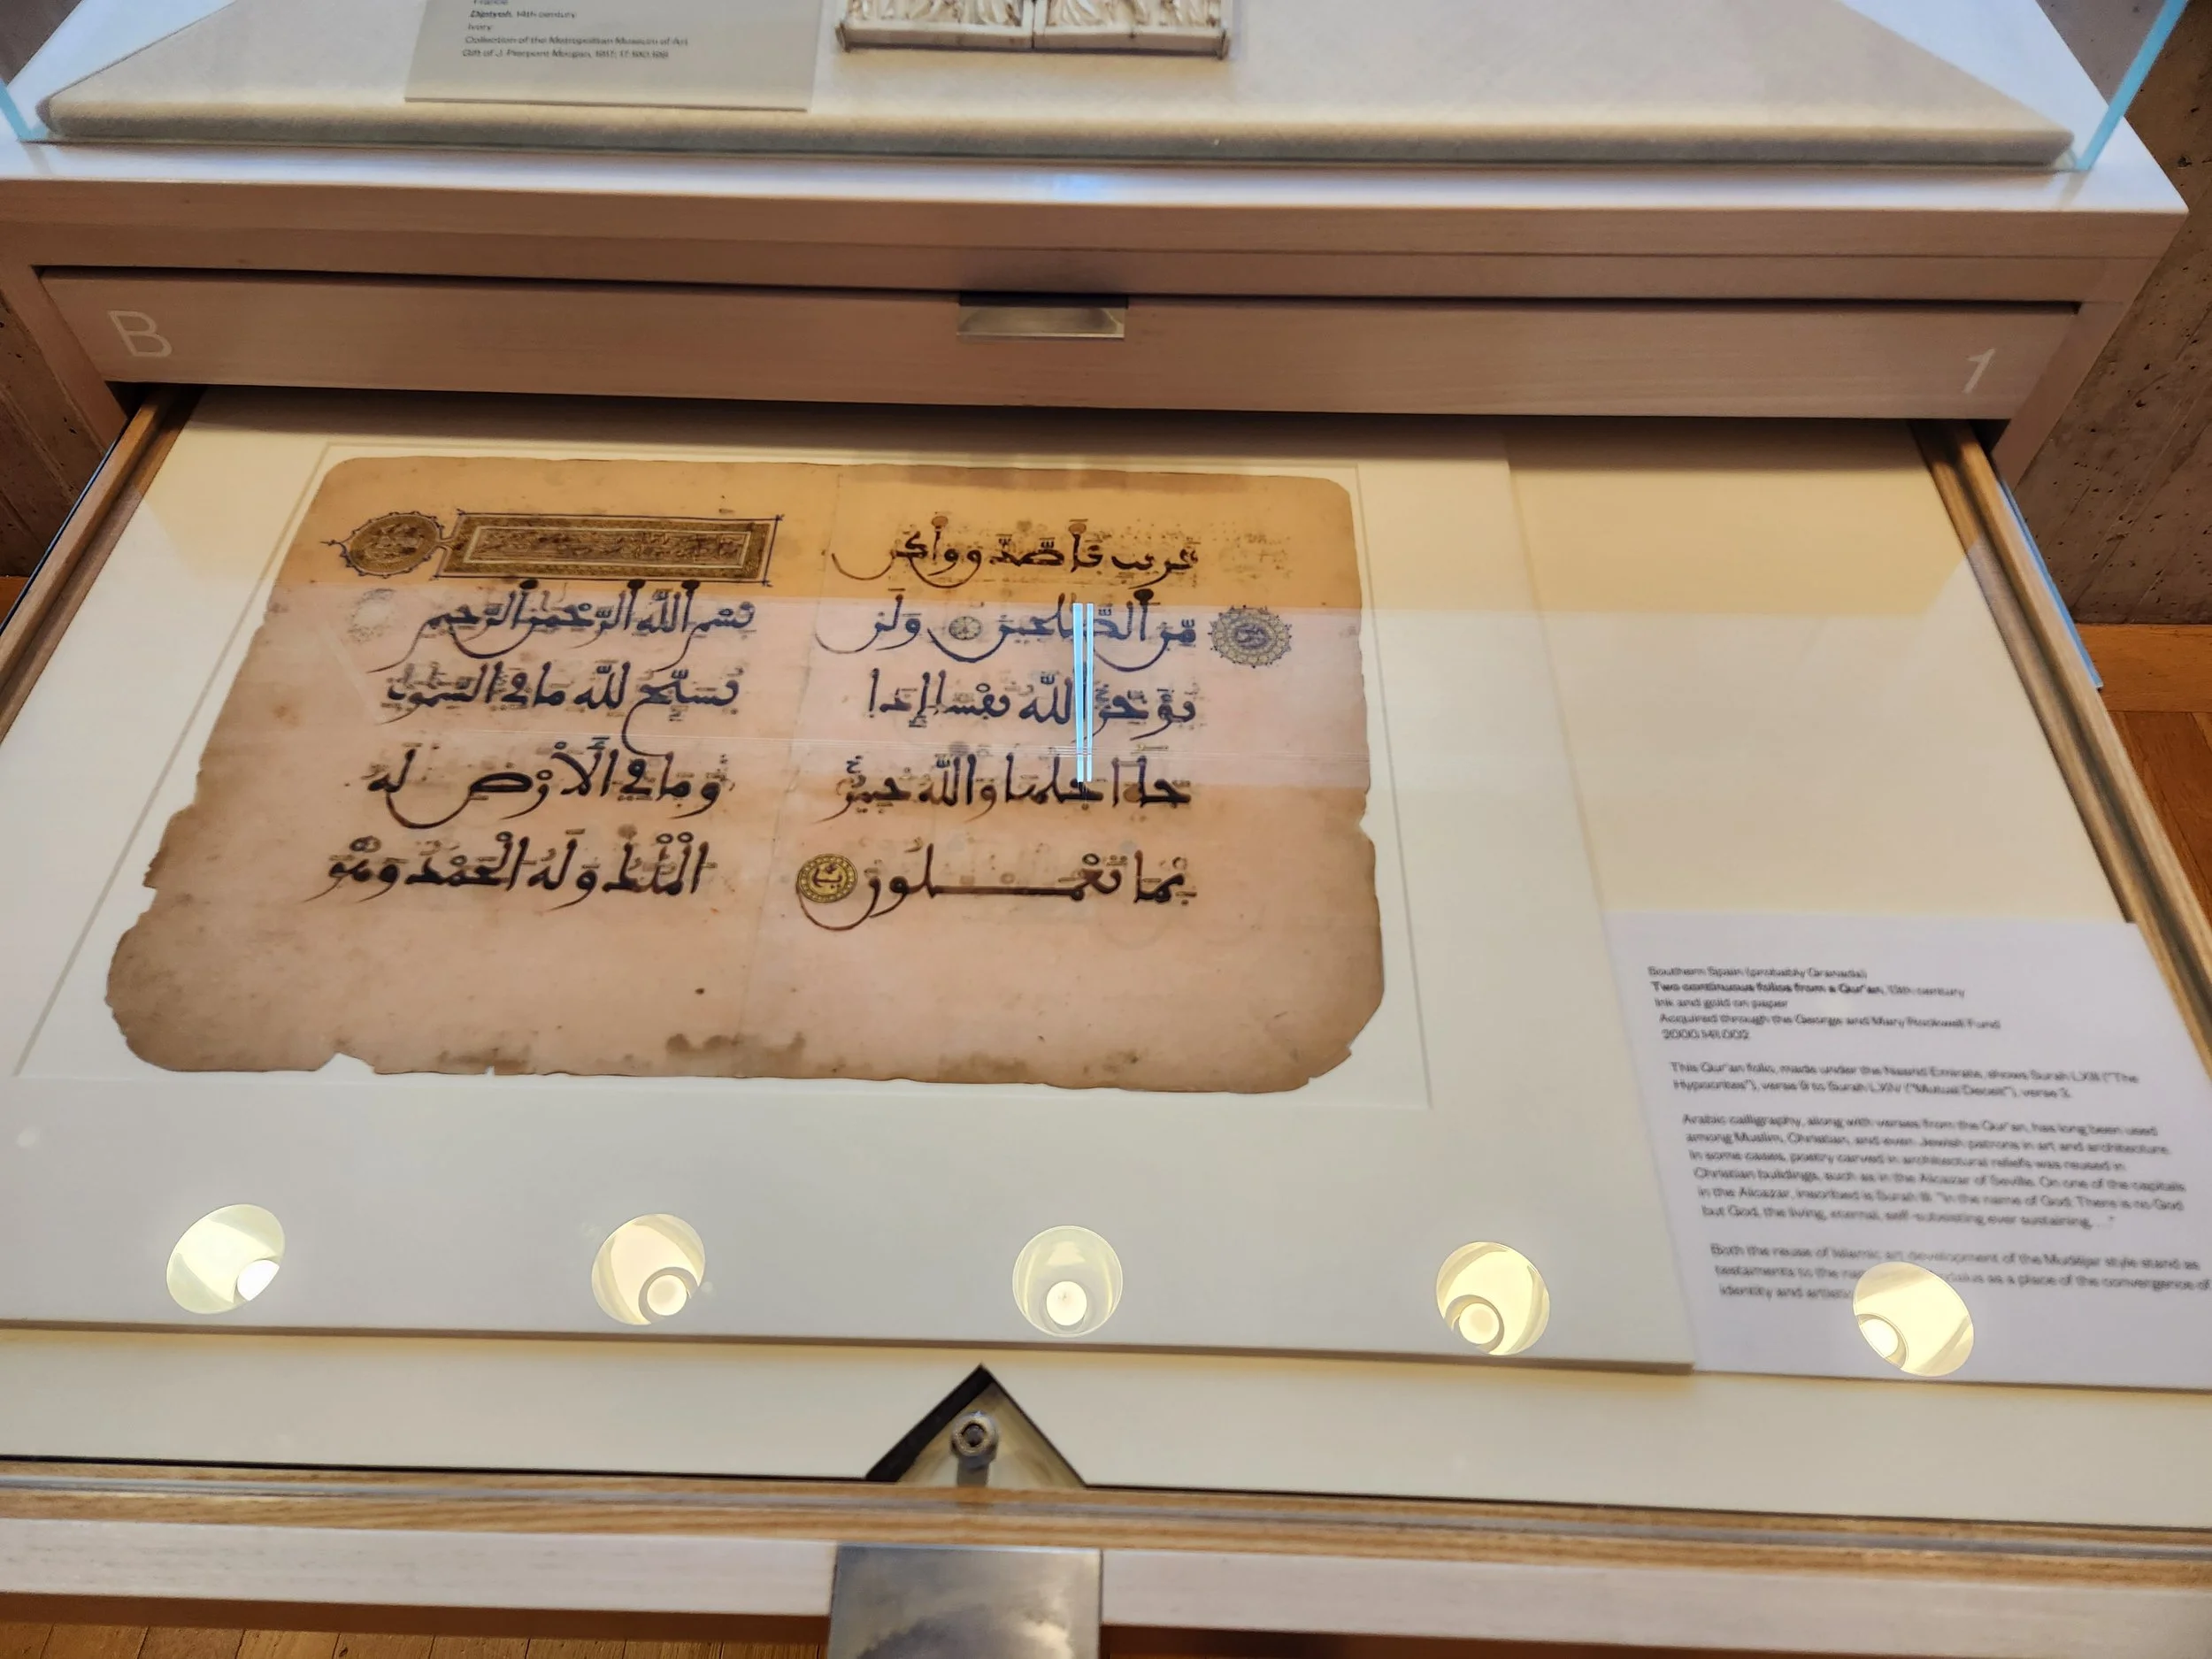 France
Diptych, 14th century
Ivory
Collection of the Metropolitan Museum of Art
Gift of J. Pierpont Morgan, 1917; 17.190.
B
1
قريب فأصدق وأكن
من الصلحين ولن
يؤخر الله نفسا إذا
جا أجلها والله خبير
بما تعملون
بسم الله الرحمن الرحيم
يسبح لله ما في السموت
وما في الأرض له
الملك وله الحمد وهو
Southern Spain (probably Granada)
Two continuous folios from a Qur'an, 13th century
Ink and gold on paper
Acquired through the George and Mary Rockwell Fund
2000.141.002
This Qur'an folio, made under the Nasrid Emirate, shows Surah LXIII ("The
Hypocrites"), verse 9 to Surah LXIV ("Mutual Deceit"), verse 3.
Arabic calligraphy, along with verses from the Qur'an, has long been used
among Muslim, Christian, and even Jewish patrons in art and architecture.
In some cases, poetry carved in architectural reliefs was reused in
Christian buildings, such as in the Alcazar of Seville. On one of the capitals
in the Alcazar, inscribed is Surah III: "In the name of God, There is no God
but God, the living, eternal, self-subsisting ever sustaining, . . ."
Both the reuse of Islamic art development of the Mudéjar style stand as
testaments to the as a place of the convergence of
identity and